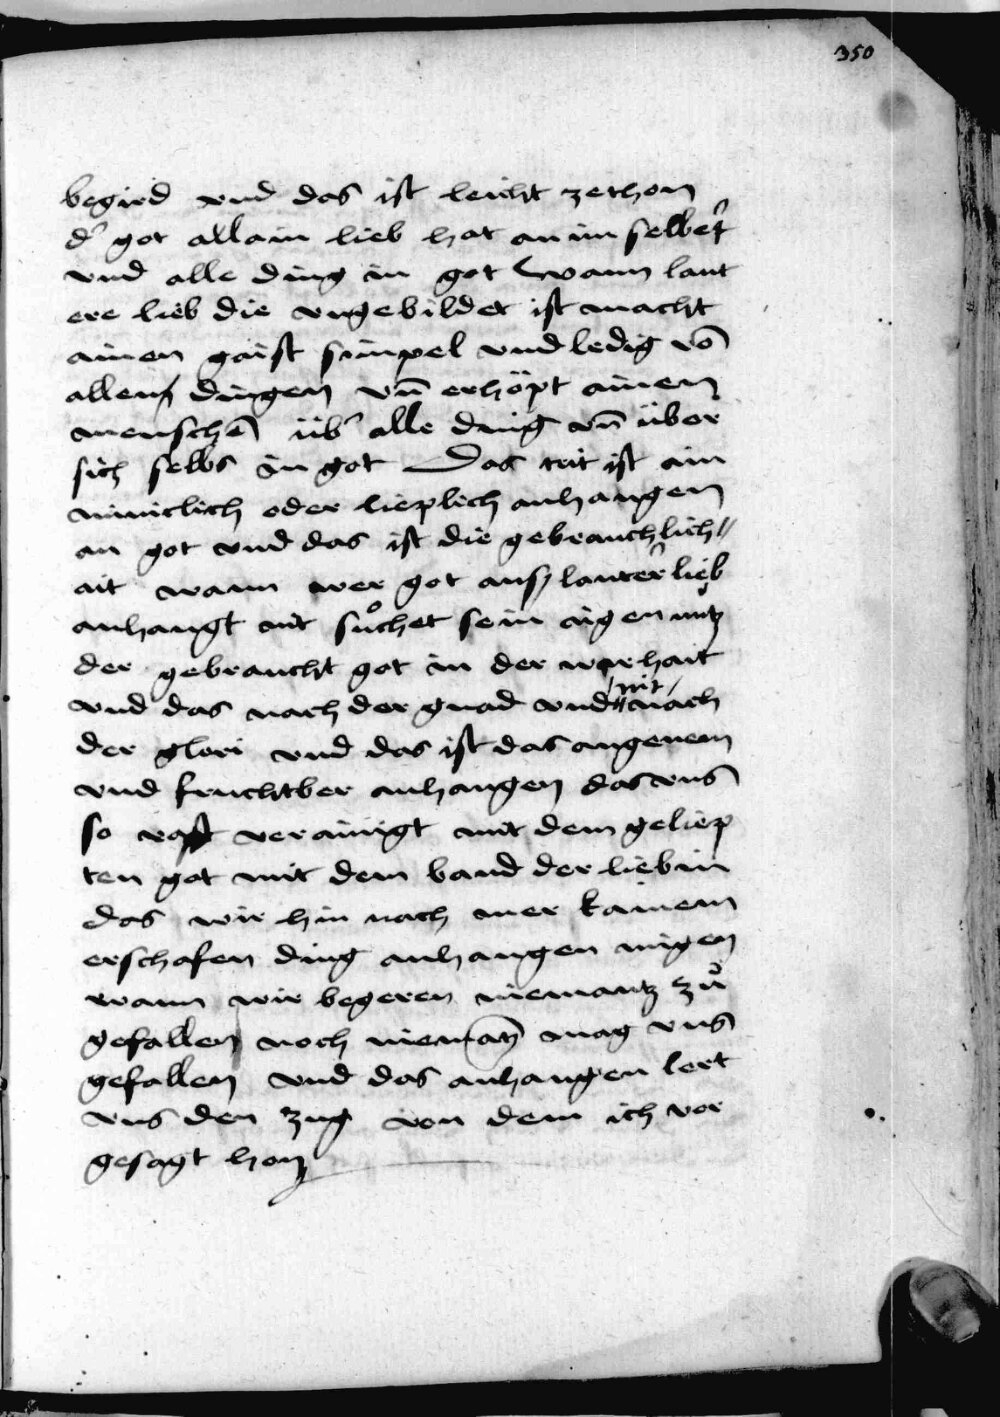 350
begird vnd das ist leicht zethon
d' got allain lieb hat an im selber
vnd alle ding in got Wann laut
ere lieb die vngebildet ist macht
ainen gaist simpel vnd ledig vō
allen dingen vn̄ erhöpt ainen
menschē üb' alle ding vn̄ über
sich selbs in got Das trit ist ain
minnclich oder lieplich anhangen
an got vnd das ist die gebrauchlich//
ait wann wer got auß lauter lieb
anhangt nit sůchet sein aigen nutz
der gebraucht got in der warhait
vnd das nach der gnad vnd nit nach
der glori vnd das ist das angenem
vnd fruchtber anhangen das vns
so vast verainigt mit dem geliep
ten got mit dem band der liebin
das wir hin nach mer kainem
erschafen ding anhangen mügen
wann wir begeren niemantz zů
gefallen noch niematz mag vns
gefallen vnd das anhangen lert
vns den zug von dem ich vor
gesagt hon